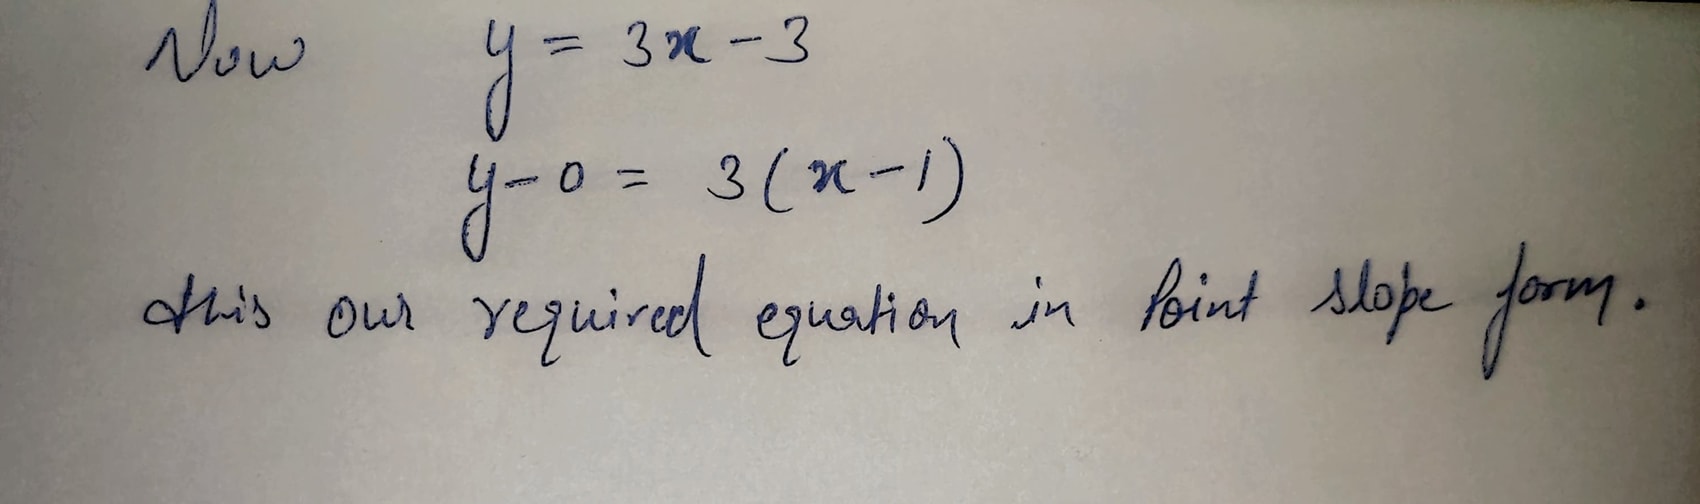 Now y = 3x - 3
y - 0 = 3(x - 1)
this our required equation in Point slope form.